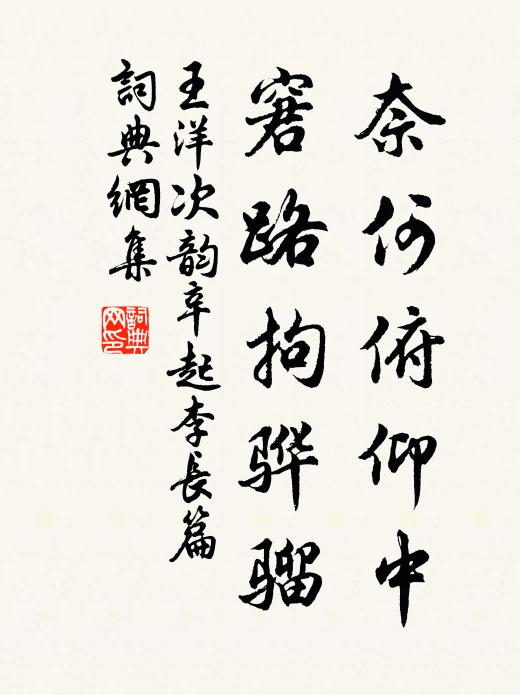 奈何俯仰中
窘路拘骅骝
王洋次韵辛起李長篇
詞典網集
詞典网印